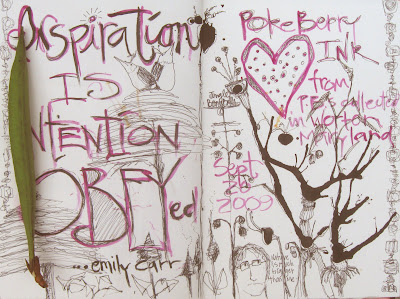 Inspiration
IS
INTENTION
OBEYed
...emily carr
PokeBerry
INK
from
P.B.'s collected
in Worton
Maryland
Sept
26
2009